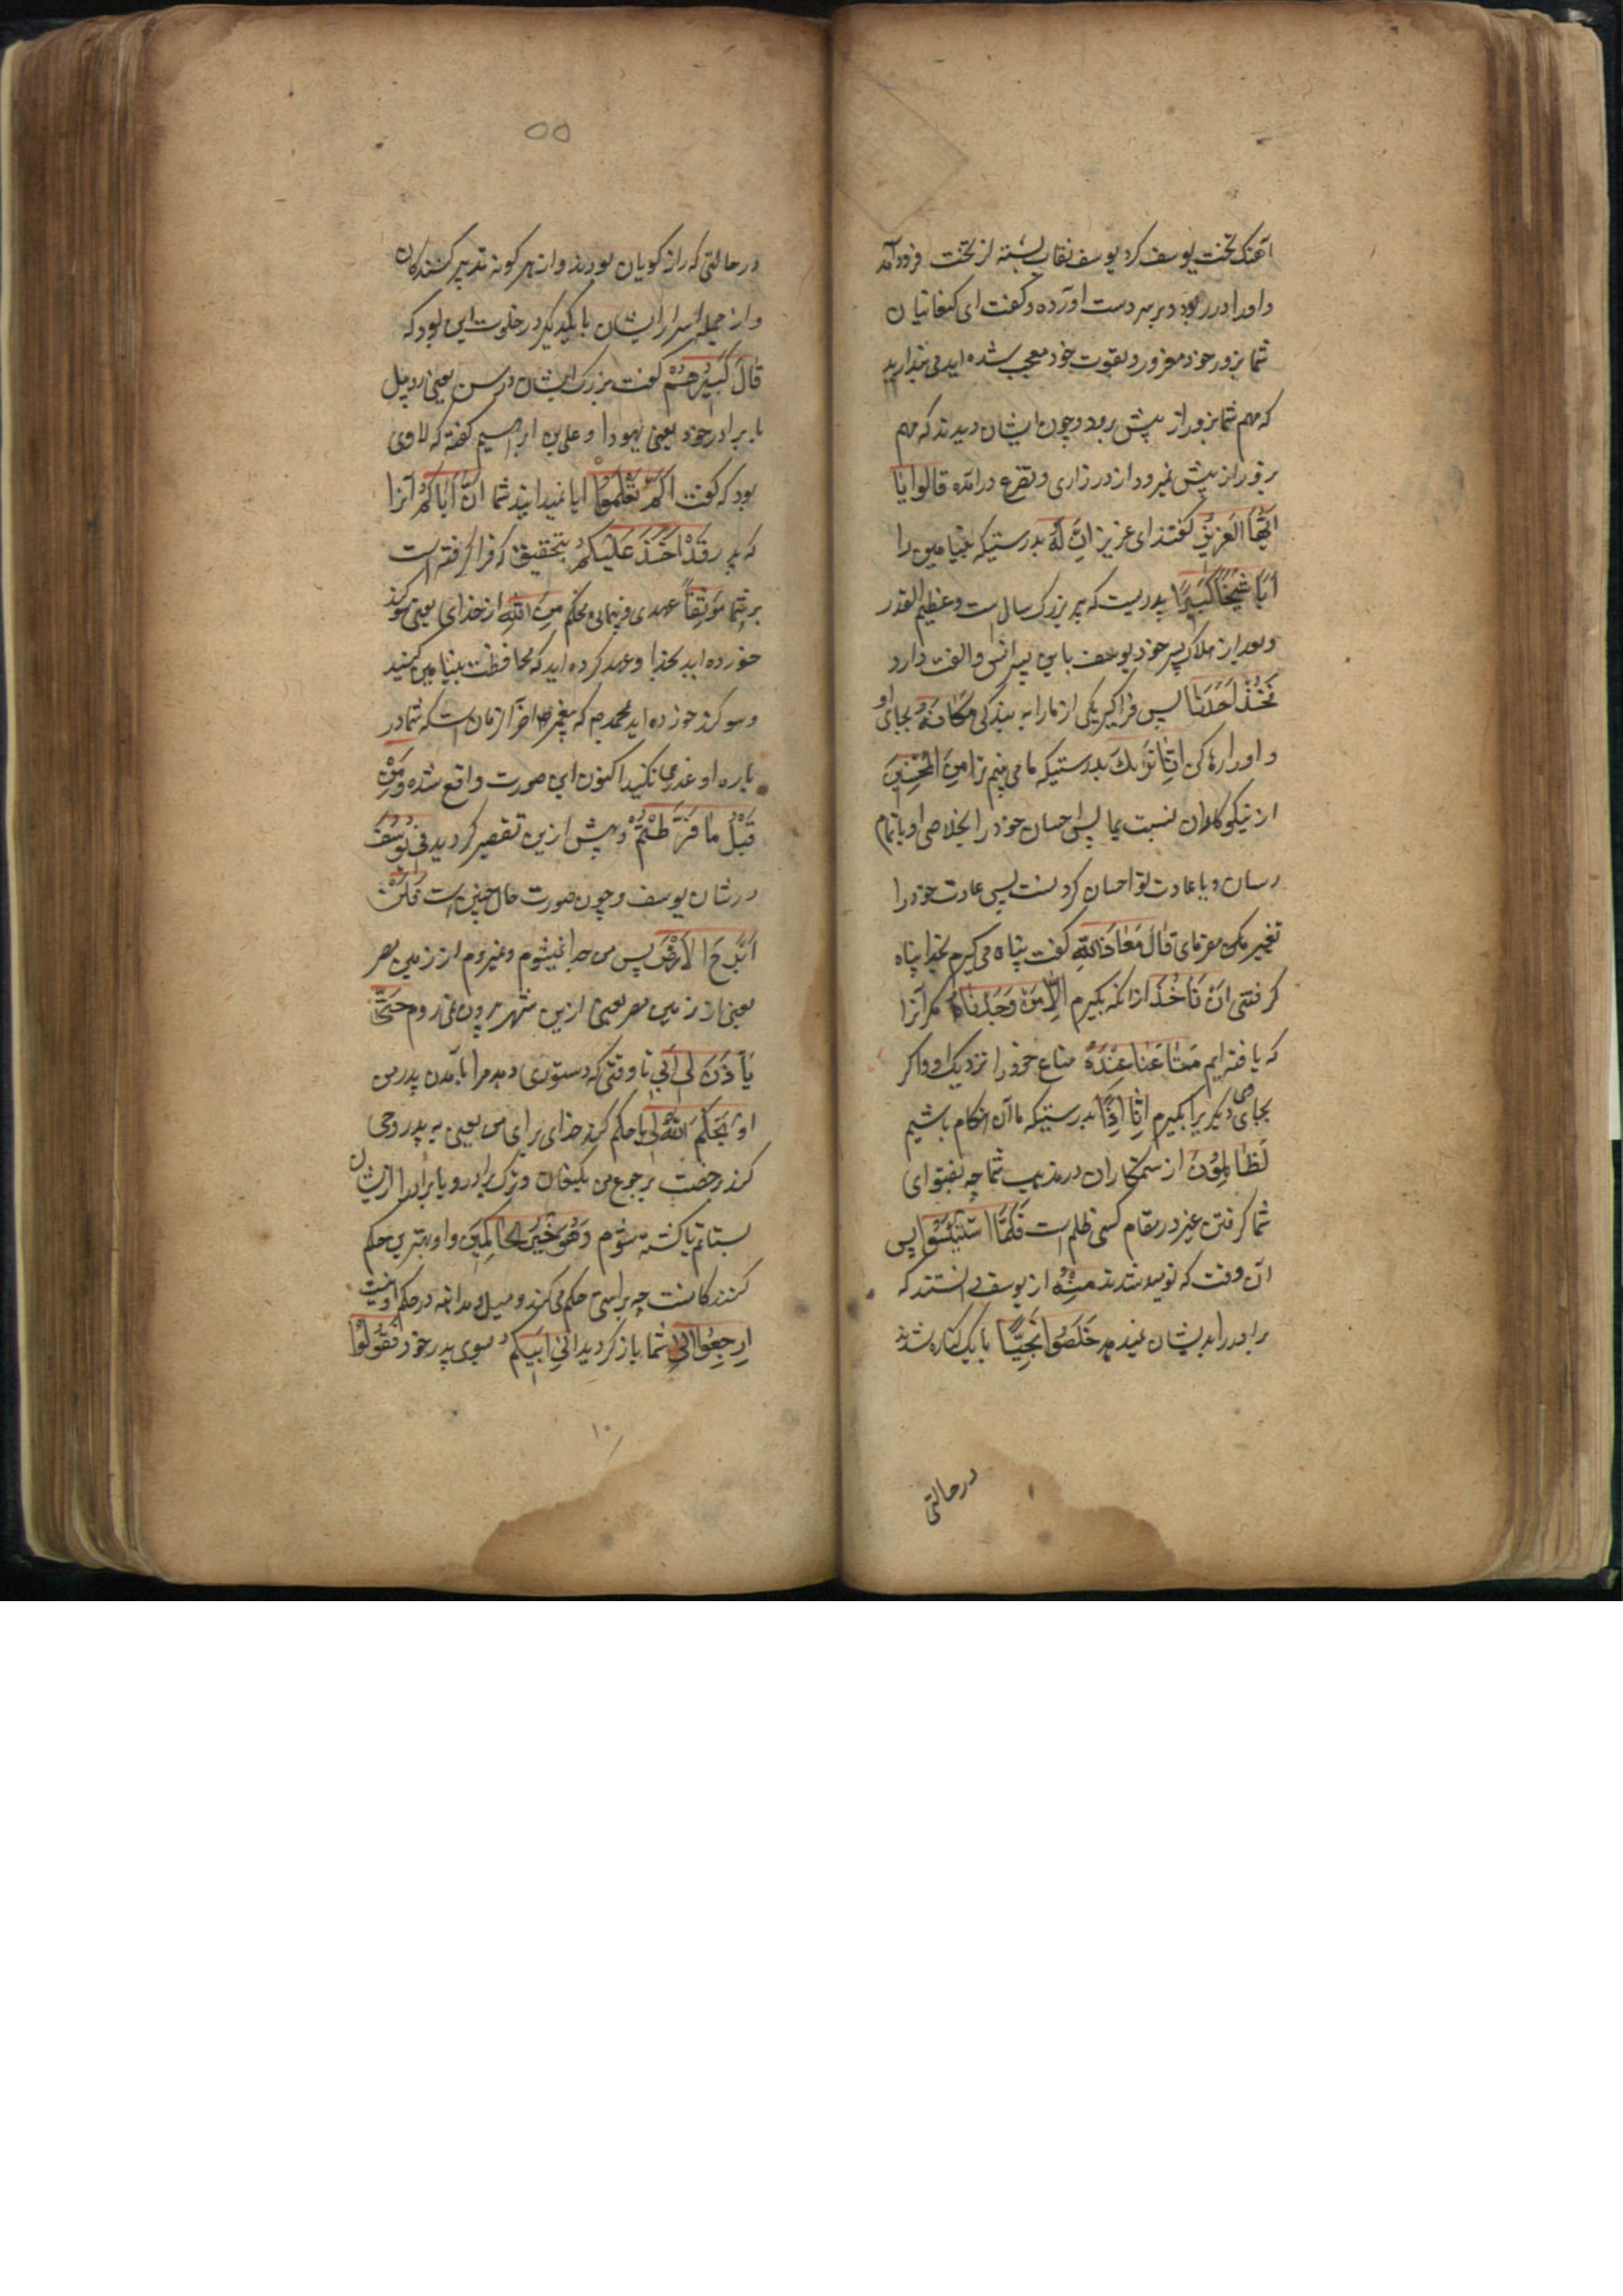 آهنک تخت یوسف کرد یوسف نقاب بسته از تخت فرود آمد
واورا در ربود و بر سر دست اورده وکفت ای کنعانیان
شما بزور خود مغرور و بقوت خود معجب شده اید می پندارید
که مهم شما بزور از پیش رود وچون ایشان دیدند که مهم
بزور از پیش نمیرود از در زاری وتضرع درآمده قالوا یا
اَیُّهَا الْعَزِیزُ کفتند ای عزیز اِنَّ لَهُ بدرستیکه بنیامین را
اَبًا شَیْخًا کَبِیرًا پدریست که پیر بزرک سال است وعظیم القدر
وبعد از هلاک پسر خود یوسف باین پسر انس والفت دارد
فَخُذْ اَحَدَنَا پس فراکیر یکی از مارا به بندکی مَکَانَهُ بجای او
و اورا رها کن اِنَّا نَرَاكَ بدرستیکه ما می بینم ترا مِنَ الْمُحْسِنِینَ
از نیکوکاران نسبت بما پس احسان خود را بخلاصی او باتمام
رسان ویا عادت تو احسان کردنست پس عادت خود را
تغییر مکن مفرمای قَالَ مَعَاذَ اللهِ کفت پناه می کیرم بخدا پناه
کرفتنی اَنْ نَاْخُذَ ازانکه بکیرم اِلَّا مَنْ وَجَدْنَا مکر آنرا
که یافته ایم مَتَاعَنَا عِنْدَهُ متاع خود را نزدیک او واکر
بجای وی دیکریرا بکیرم اِنَّا اِذًا بدرستیکه ما آن هنکام باشیم
لَظَالِمُوْنَ از ستمکاران در مذهب شما چه بفتوای
شما کرفتن غیر در مقام کسی ظلم است فَلَمَّا اسْتَیْئَسُوا پس
آن وقت که نومید شدند مِنْهُ از یوسف دانستند که
برادر را بدیشان نمیدهد خَلَصُوا نَجِیًّا بایک کناره شدند
درحالتی
۵۵
درحالتی که راز کویان بودند واز هر کونه تدبیر کنندکان
واز جمله اسرار ایشان بایکدیکر در خلوت این بود که
قَالَ کَبِیْرُهُمْ کفت بزرک ایشان در سن یعنی روبیل
با برادر خود یعنی یهودا وعلی بن ابراهیم کفته که لاوی
بود که کفت اَلَمْ تَعْلَمُوا ایا نمیدانید شما اَنَّ اَبَاکُمْ آنرا
که پدر قَدْ اَخَذَ عَلَیْکُمْ بتحقیق که فرا کرفته است
بر شما مَوْثِقًا عهدی و پیمانی محکم مِنَ اللهِ از خدای یعنی سوکند
خورده اید بخدا وعهد کرده اید که محافظت بنیامین کنید
وسوکند خورده اید بمحمد ص که پیغمبر آخر الزمان است که شما در
باره او غدر نکنید اکنون این صورت واقع شده وَمِنْ
قَبْلُ مَا فَرَّطْتُمْ وپیش ازین تقصیر کردید فِی یُوسُفَ
در شان یوسف وچون صورت حال چنین است فَلَنْ
اَبْرَحَ الْاَرْضَ پس من جدا نمیشوم ونمیروم از زمین مصر
یعنی از زمین مصر یعنی ازین شهر بیرون نمی روم حَتَّی
یَاْذَنَ لِی اَبِی تا وقتی که دستوری دهد مرا بآمدن پدر من
اَوْ یَحْکُمَ اللهُ لِی یا حکم کند خدای برای من یعنی به پدر وحی
کند برخصت برجوع من بکنعان وترک برادر ویا برادر را ازیشان
بستانم یا کشته شوم وَهُوَ خَیْرُ الْحَاکِمِینَ واو بهترین حکم
کنندکانست چه براستی حکم می کند ومیل ومداهنه در حکم او نیست
اِرْجِعُوا اِلَی شما باز کردید اِلَی اَبِیکُمْ بسوی پدر خود فَقُولُوا
۱۰